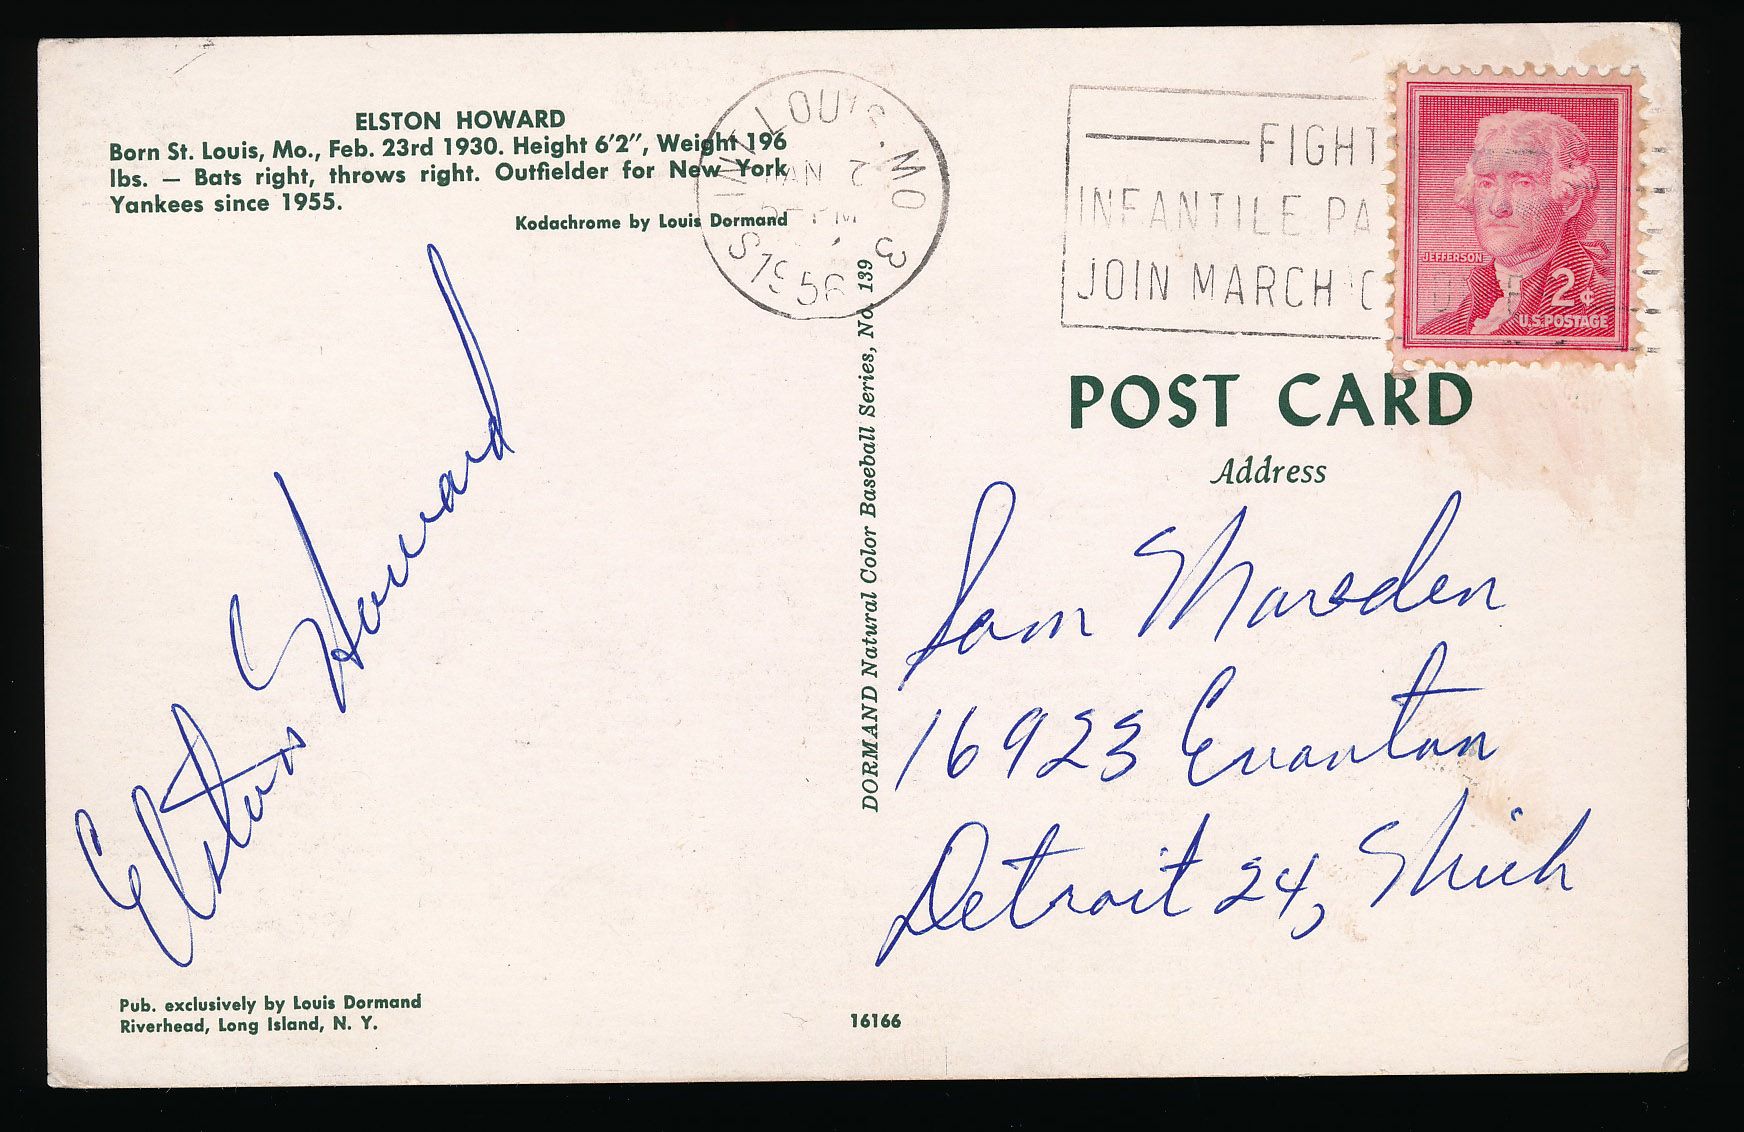 ELSTON HOWARD
Born St. Louis, Mo., Feb. 23rd 1930. Height 6'2", Weight 196
lbs. — Bats right, throws right. Outfielder for New York
Yankees since 1955.
Kodachrome by Louis Dormand
Elston Howard
Pub. exclusively by Louis Dormand
Riverhead, Long Island, N. Y.
DORMAND Natural Color Baseball Series, No. 139
16166
LOUIS, MO 3
PM
1956
FIGHT
INFANTILE PA
JOIN MARCH
JEFFERSON
2¢
U.S. POSTAGE
POST CARD
Address
Sam Marsden
16923 Evanston
Detroit 24, Mich